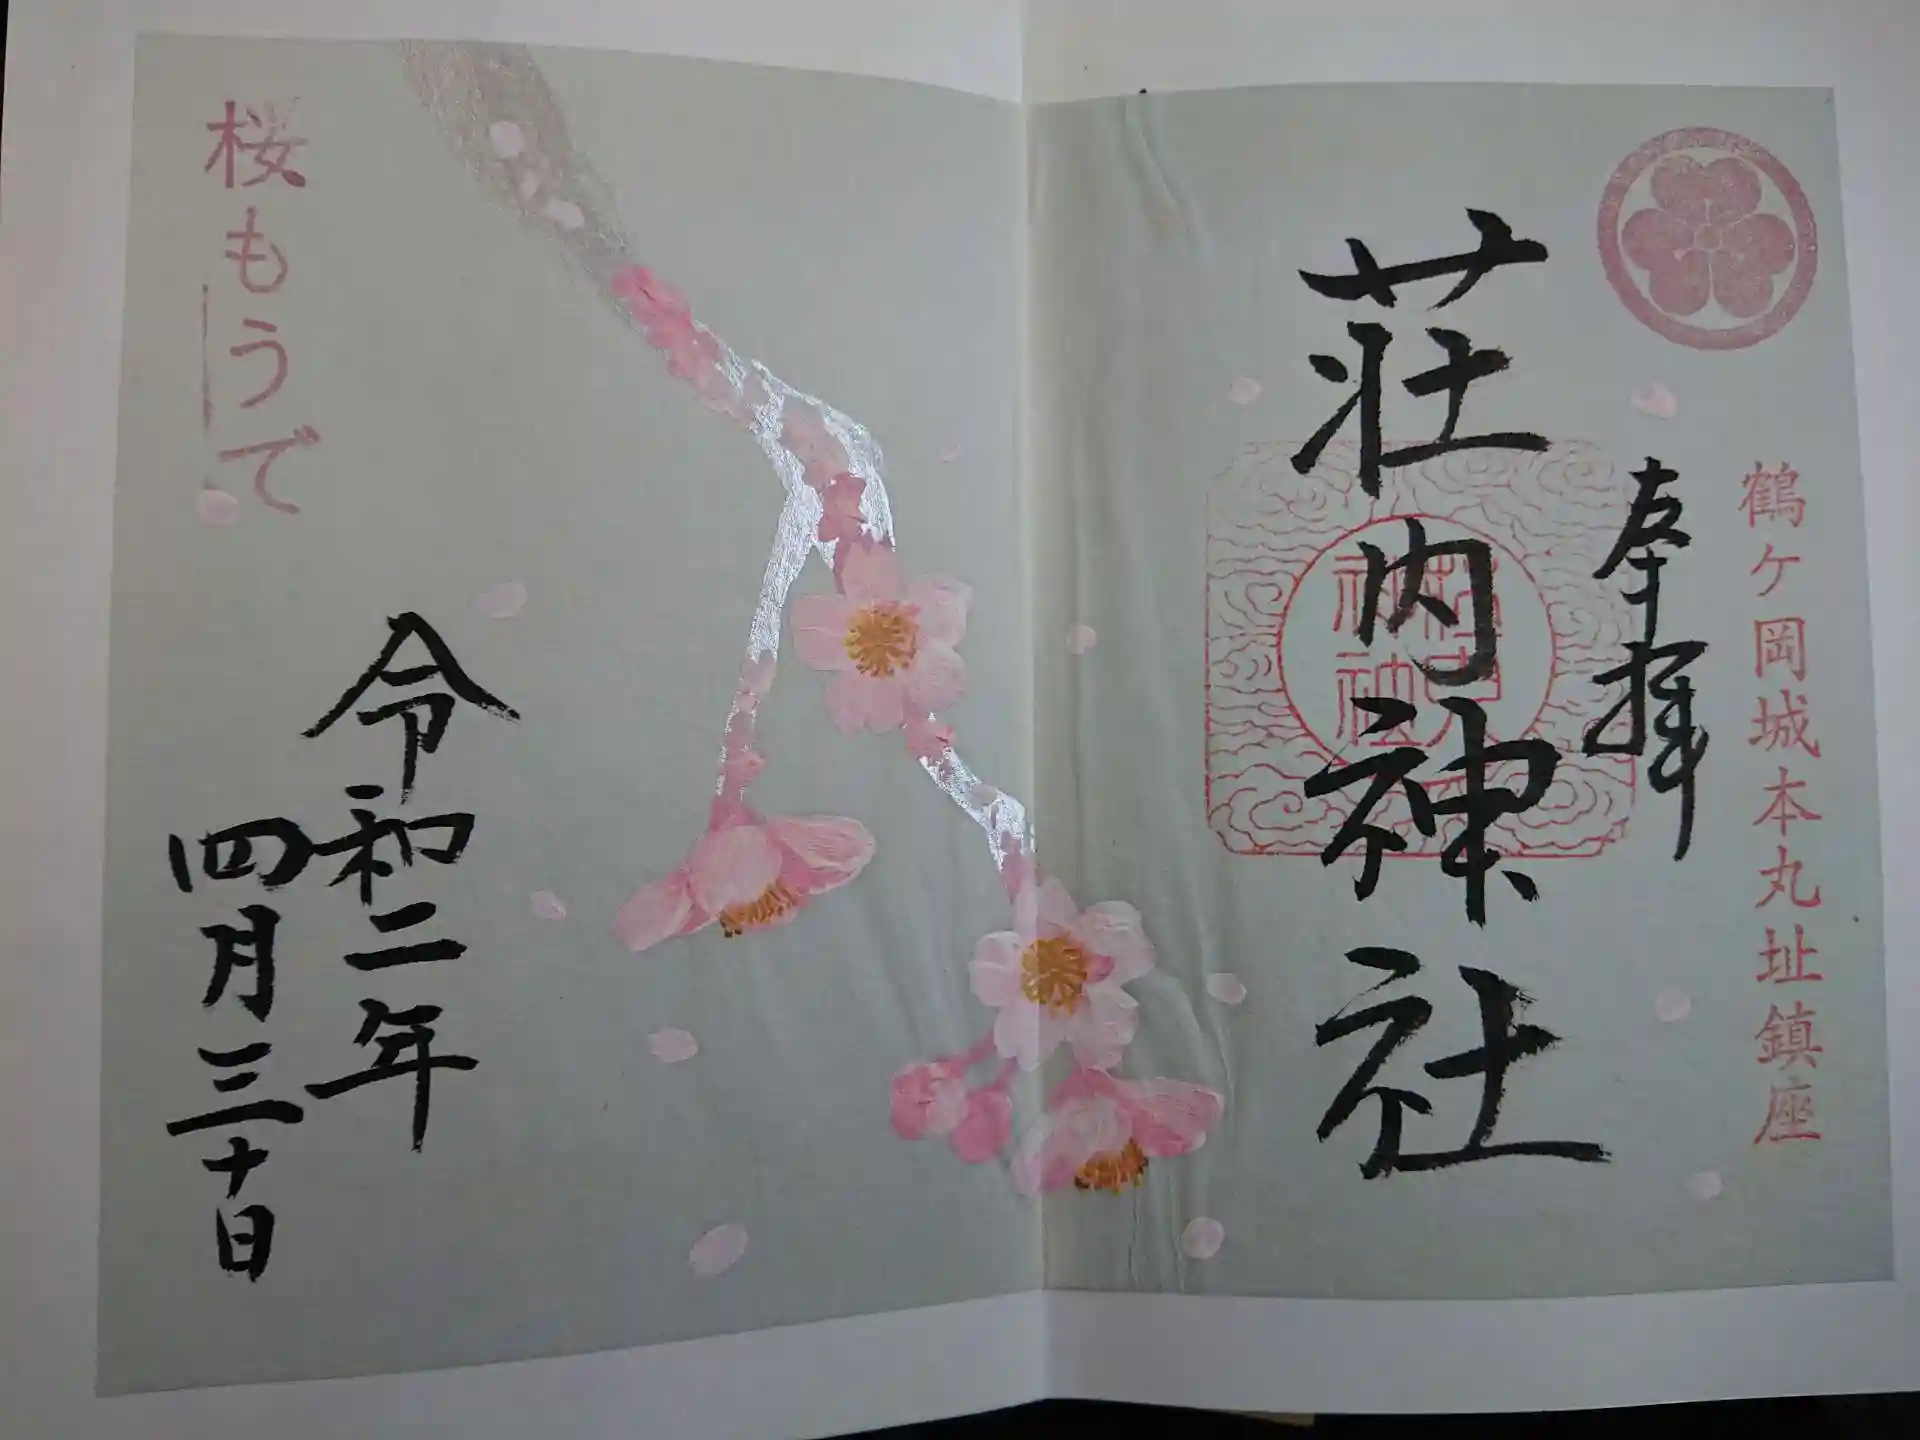 鶴ヶ岡城本丸址鎮座
奉拝
荘内神社
荘内神社
桜もうで
令和二年
四月三十日